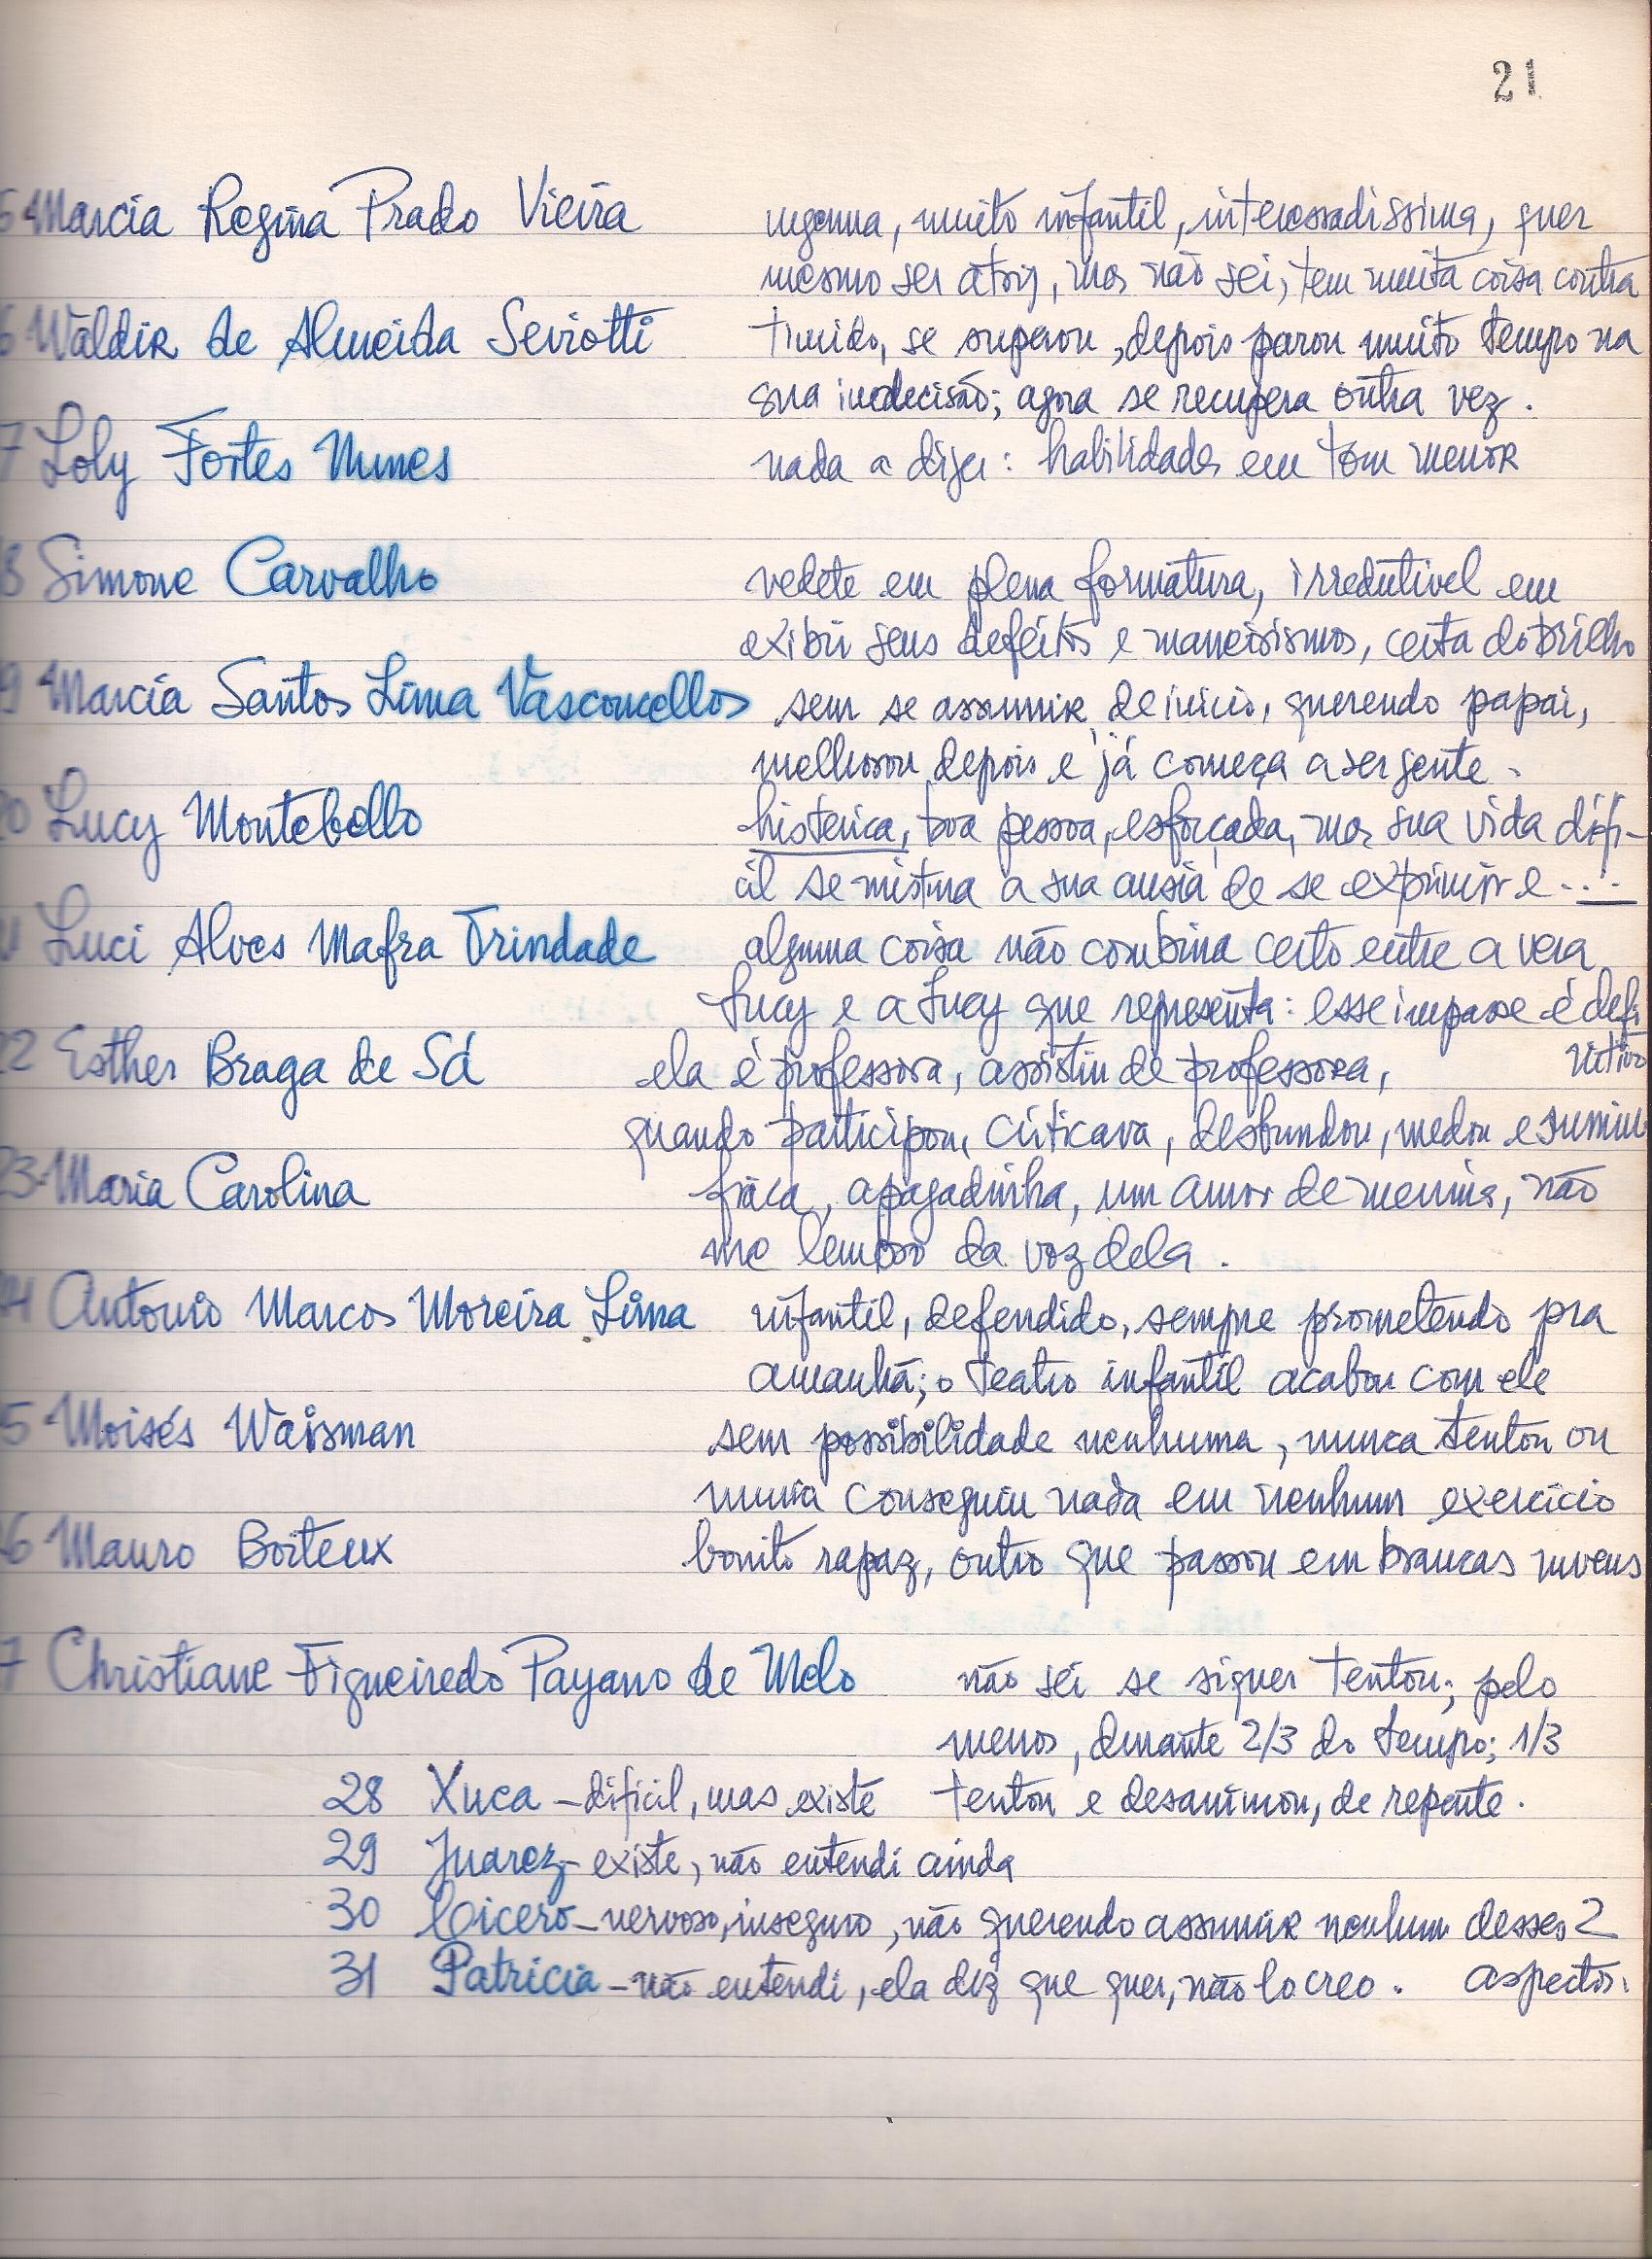 21
5 Marcia Regina Prado Vieira ingenua, muito infantil, interessadissima, quer
mesmo ser atriz, mas não sei, tem muita coisa contra
6 Waldir de Almeida Seviotti timido, se superou, depois parou muito tempo na
sua indecisão; agora se recupera outra vez.
7 Loly Fortes Nunes nada a dizer: habilidades em tom menor
8 Simone Carvalho vedete em plena formatura, irredutivel em
exibir seus defeitos e maneirismos, certa do brilho
9 Marcia Santos Lima Vasconcellos sem se assumir de inicio, querendo papai,
melhorou depois e já começa a ser gente.
20 Lucy Montebello histerica, boa pessoa, esforçada, mas sua vida difi-
cil se mistura a sua ansia de se exprimir e ....
21 Luci Alves Mafra Trindade alguma coisa não combina certo entre a vera
Lucy e a Lucy que representa: esse impasse é defi
nitivo
22 Esther Braga de Sá ela é professora, assistiu de professora,
quando participou, criticava, desbundou, medou e sumiu
23 Maria Carolina fraca, apagadinha, um amor de menina, não
me lembro da voz dela.
24 Antonio Marcos Moreira Lima infantil, defendido, sempre prometendo pra
amanhã; o teatro infantil acabou com ele
5 Moisés Waisman sem possibilidade nenhuma, nunca tentou ou
nunca conseguiu nada em nenhum exercicio
26 Mauro Boiteux bonito rapaz, outro que passou em brancas nuvens
7 Christiane Figueiredo Payano de Melo não sei se siquer tentou; pelo
menos, durante 2/3 do tempo; 1/3
tentou e desanimou, de repente.
28 Xuca – dificil, mas existe
29 Juarez – existe, não entendi ainda
30 Cicero – nervoso, inseguro, não querendo assumir nenhum desses 2
aspectos.
31 Patricia – não entendi, ela diz que quer, não lo creo.